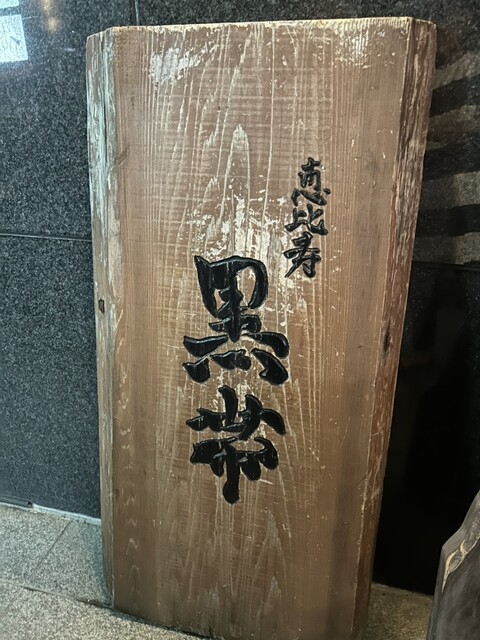 恵比寿
黒帯